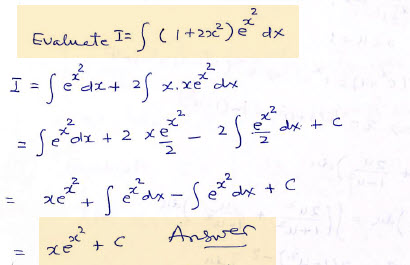 Evaluate I = ∫ (1+2x²) e^{x²} dx
I = ∫ e^{x²} dx + 2 ∫ x . x e^{x²} dx
= ∫ e^{x²} dx + 2 x e^{x²}/2 - 2 ∫ e^{x²}/2 dx + C
= x e^{x²} + ∫ e^{x²} dx - ∫ e^{x²} dx + C
= x e^{x²} + C Answer